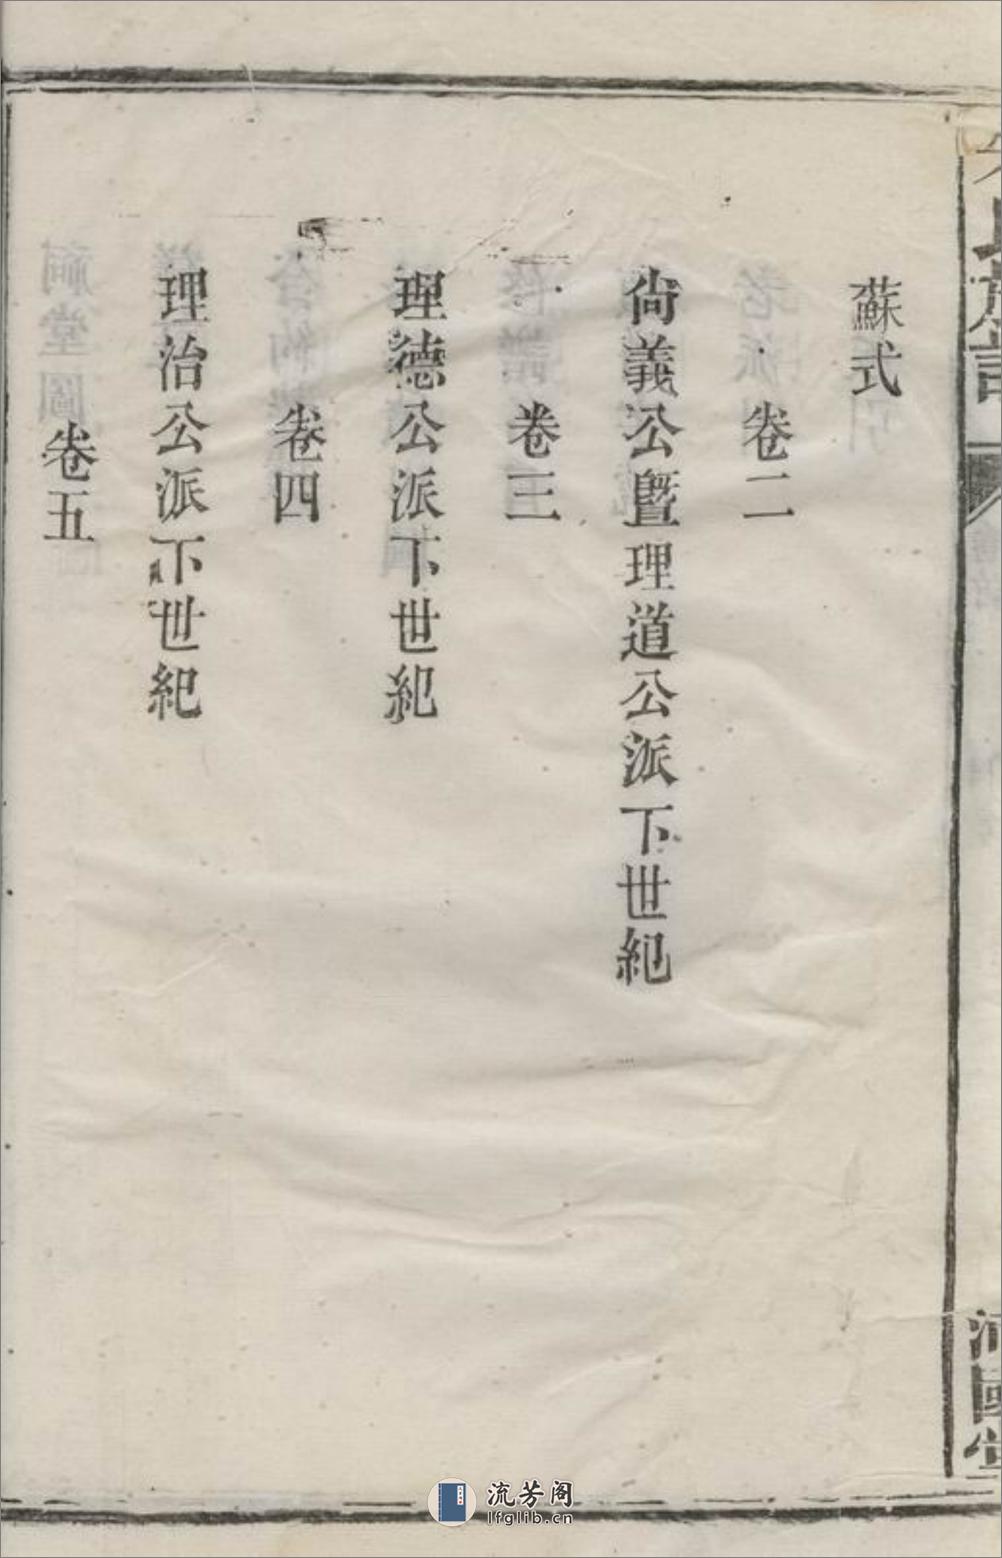 蘇式
卷二
尙義公曁理道公派下世紀
卷三
理德公派下世紀
卷四
理治公派下世紀
卷五
流芳阁
lfglib.cn